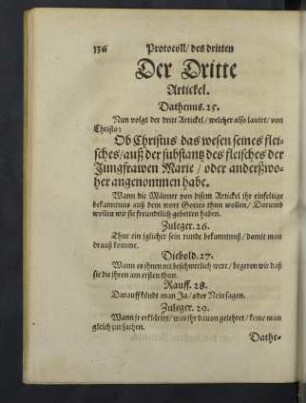 136 Protocoll/ des dritten
Der Dritte
Artickel.
Dathenus. 25.
Nun volgt der dritt Artickel/ welcher also lautet/ von
Christo:
Ob Christus das wesen seines flei-
sches/ auß der substantz des fleisches der
Jungfrawen Marie/ oder anderßwo-
her angenommen habe.
Wann die Männer von disem Artickel ihr einfeltige
bekanntnus auß dem wort Gottes thun wollen/ Darumb
wollen wir sie freundtlich gebetten haben.
Zuleger. 26.
Thue ein jglicher sein runde bekanntnuß/ damit man
drauß komme.
Diebold. 27.
Wann es ihnen nit beschwerlich wert/ begeren wir daß
sie die ihren am ersten thun.
Rauff. 28.
Darauff köndt man Ja/ oder Nein sagen.
Zuleger. 29.
Wann jr erklärtet/ was ihr dauon gelehret/ keme man
gleich zur sachen.
Dathe-